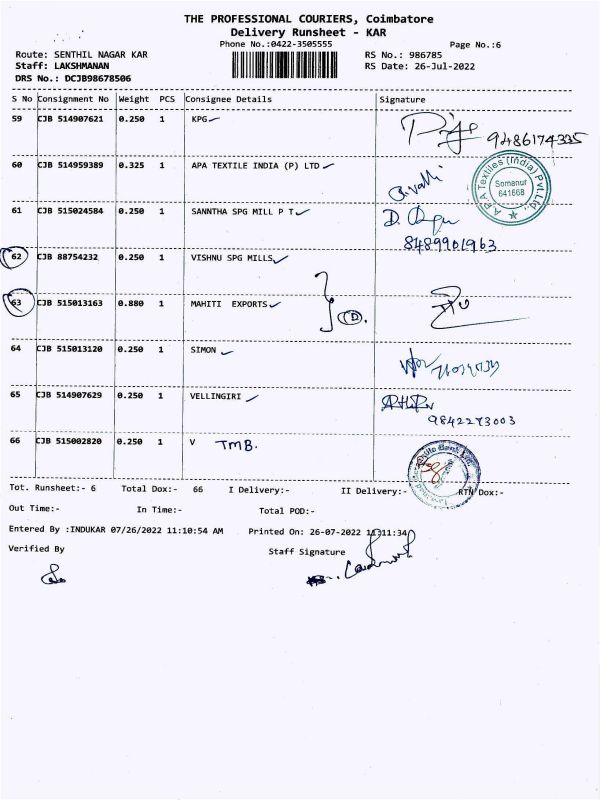 THE PROFESSIONAL COURIERS, Coimbatore
Delivery Runsheet - KAR
Phone No.:0422-3505555
Page No.:6
Route: SENTHIL NAGAR KAR
RS No.: 986785
Staff: LAKSHMANAN
RS Date: 26-Jul-2022
DRS No.: DCJB98678506
S No Consignment No Weight PCS Consignee Details Signature
59 CJB 514907621 0.250 1 KPG
9486174335
60 CJB 514959389 0.325 1 APA TEXTILE INDIA (P) LTD
APA Textiles (India) Pvt. Ltd.
Somanur
641668
61 CJB 515024584 0.250 1 SANNTHA SPG MILL P T
8489901963
62 CJB 88754232 0.250 1 VISHNU SPG MILLS
63 CJB 515013163 0.880 1 MAHITI EXPORTS
64 CJB 515013120 0.250 1 SIMON
65 CJB 514907629 0.250 1 VELLINGIRI
9842273003
66 CJB 515002820 0.250 1 V TMB.
Tot. Runsheet:- 6 Total Dox:- 66 I Delivery:- II Delivery:- RTN Dox:-
Out Time:- In Time:- Total POD:-
Entered By :INDUKAR 07/26/2022 11:10:54 AM Printed On: 26-07-2022 11:11:34
Verified By Staff Signature